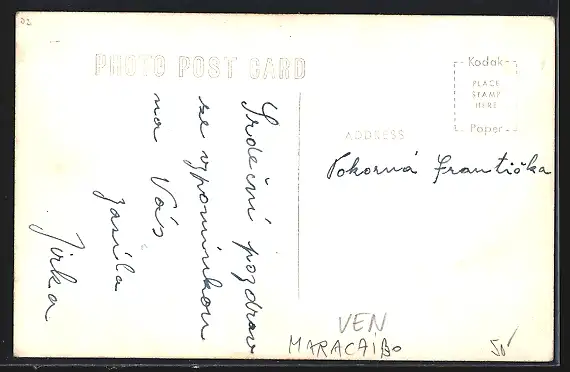 D2
PHOTO POST CARD
Srdečný pozdrav
se vzpomínkou
na Vás
zasílá
Jirka
Kodak
PLACE
STAMP
HERE
Paper
ADDRESS
Pokorná Františka
VEN
MARACAIBO
50